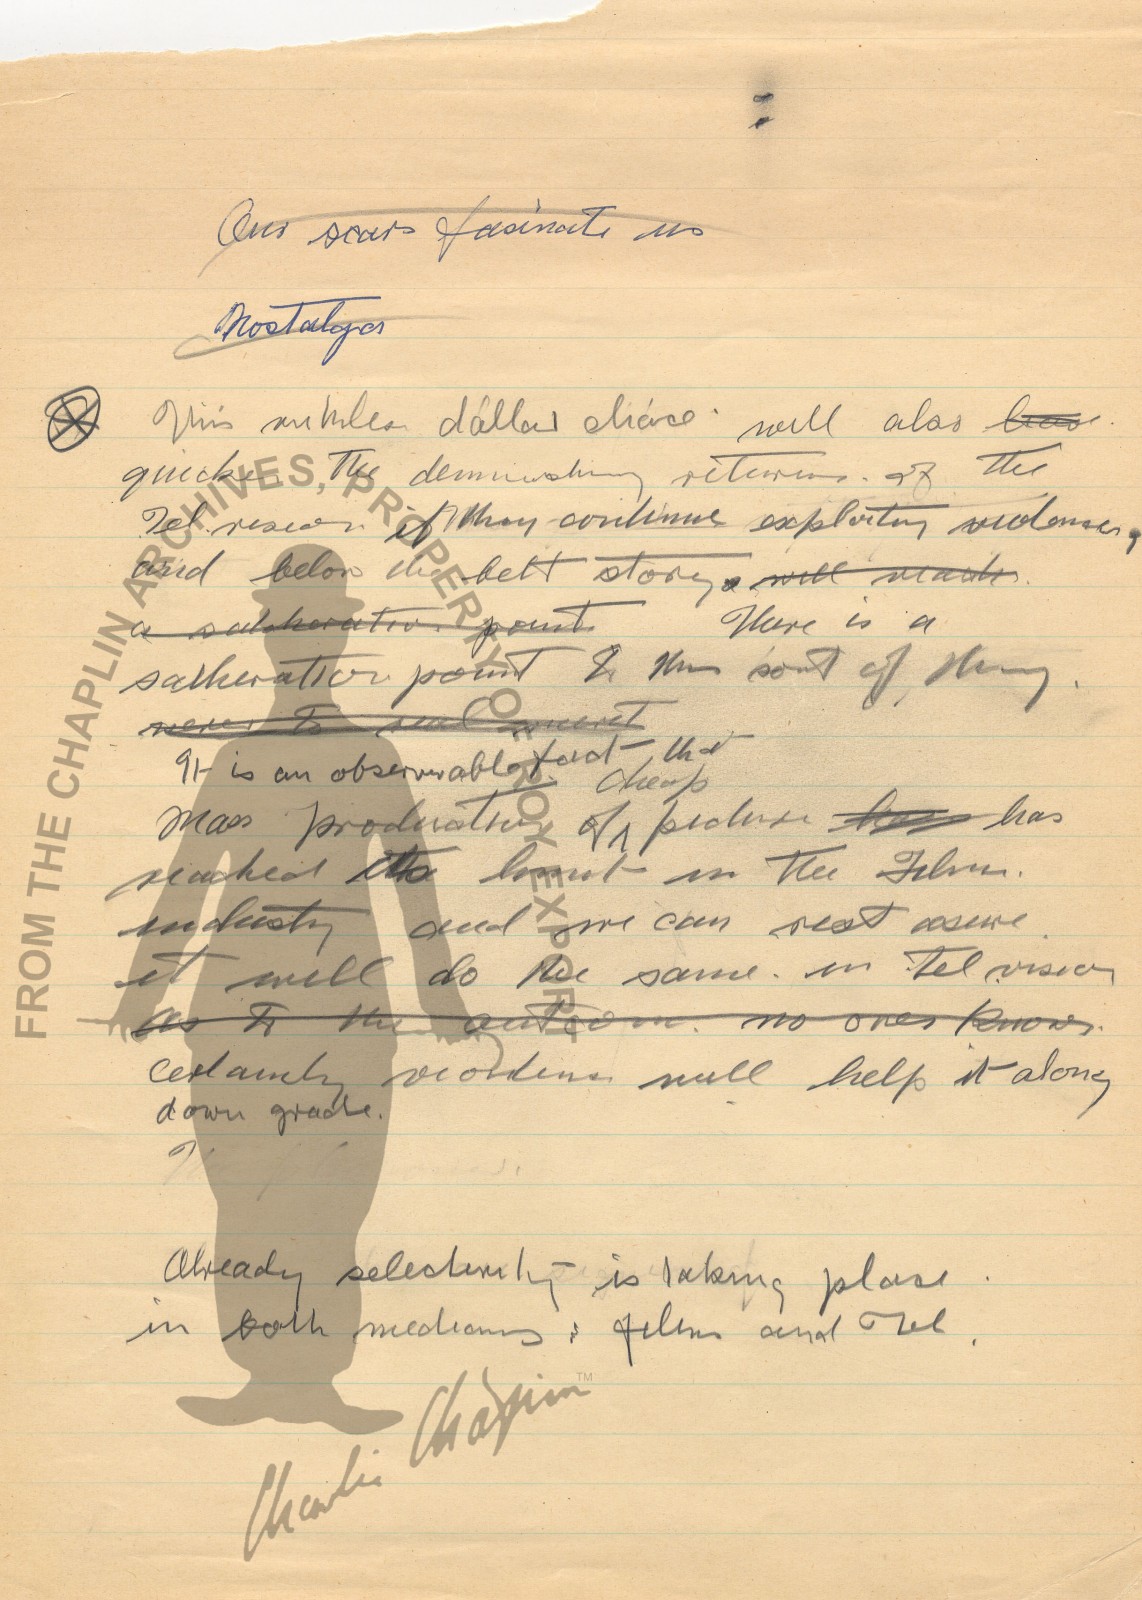 Our scars fasinate us
Nostalga
This ruthless dollar chase will also
quicken the deminishing returns of the
Tel.vision if they continue exploiting violence,
and below the belt story, will reach
a satheration point There is a
satheration point to this sort of thing.
never to real merit
It is an observerable fact that
cheap
Mass production of picture has has
reached its limit in the Film
industry and we can rest assure
it will do the same in Tel vision
as to the outcome no ones knows
certainly violence will help it along
down grade.
Already selectivity is taking place
in both mediums; films and Tel.
FROM THE CHAPLIN ARCHIVES, PROPERTY OF ROY EXPORT
Charlie Chaplin™